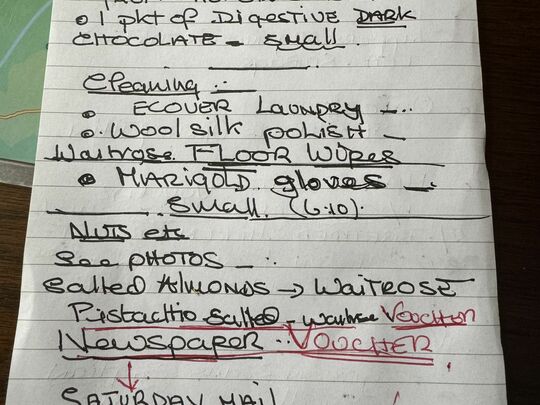 • 1 pkt of DIGESTIVE DARK
CHOCOLATE - small.
Cleaning :-
• ECOVER LAUNDRY -..
• Wool silk polish -
Waitrose FLOOR WIPES
• MARIGOLD gloves -.
Small. (6.10).
NUTS etc
See PHOTOS -.
Salted ALMONDS → WAITROSE
Pistachio Salted - Waitrose VOUCHER
Newspaper .. VOUCHER
SATURDAY MAIL